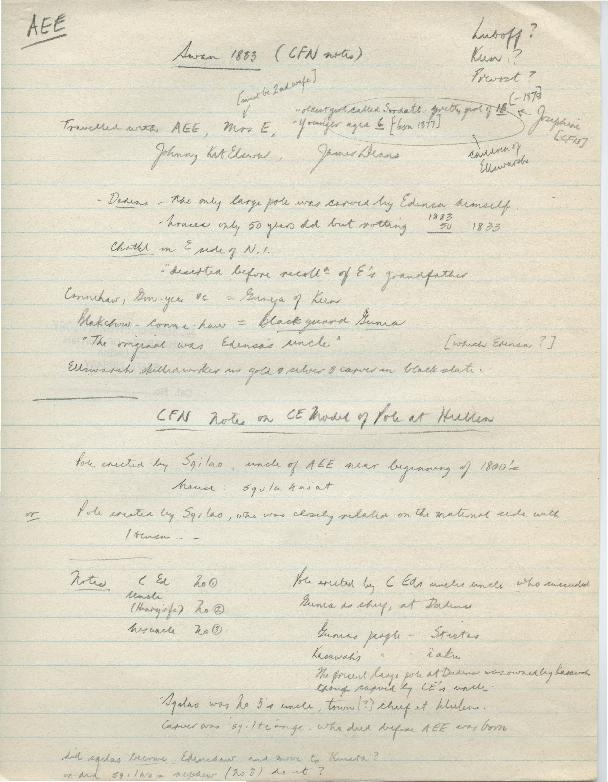 AEE
Luboff?
Swan 1883 (CFN notes)
Kun?
Prevost?
[must be 2nd wife]
"oldest girl called Soodatl. pretty girl of 10 [-1873]
Travelled with AEE, Mrs E, "Younger aged 6 [born 1877]
Josephine [CFN]
Johnny Kit Elswa, James Deans
Ellswarsh
- Dadens - the only large pole was carved by Edensa himself
- houses only 50 years old but rotting 1883 50 1833
Chathl in E side of N.I.
"deserted before recoll^n of E's grandfather
= Gunia of Kun
= Blackguard Gunia
"The original was Edensa's uncle" [which Edensa?]
Ellswarsh skilled worker in gold & silver & carver in black slate.
CFN Notes on CE Model of Pole at Hiellen
Pole erected by Sqilao, uncle of AEE near beginning of 1800's
house:
or Pole erected by Sqilao, who was closely related on the maternal side with
Notes C Ed No ① Pole erected by C Eds uncles uncle who succeeded
uncle
(Henry's fa) No ② Gunia as chief, at Dadens
his uncle No ③ Gunias people - Stastas
Kasawaks "
The present large pole at Dadens was owned by
carved by CE's uncle
Sqilao was No 3's uncle, town (?) chief at Hiellen.
Carver was who died before AEE was born
did sqilao become Edenshaw and move to Kiusta?
or did sqilao's nephew (No 3) do it?